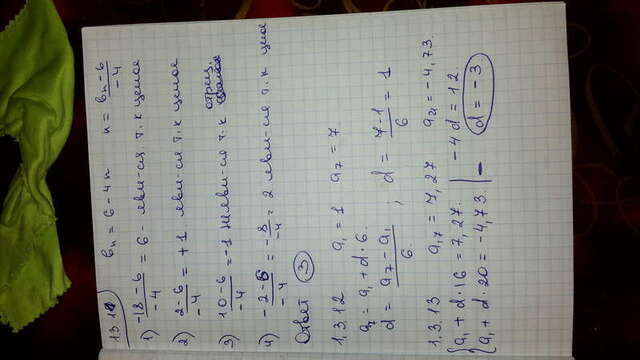 13.11 bₙ = 6 - 4n n = (bₙ - 6)/-4
1) (-18 - 6)/-4 = 6 - явл-ся т. к целое
2) (2 - 6)/-4 = +1 явл-ся т. к целое
3) (10 - 6)/-4 = -1 не явл-ся т. к отриц.
4) (-2 - 6)/-4 = -8/-4 = 2 явл-ся т. к целое
Ответ 3
1.3.12 a₁ = 1 a₇ = 7
a₇ = a₁ + d·6.
d = (a₇ - a₁)/6. ; d = (7 - 1)/6 = 1
1.3.13 a₁₇ = 7,27 a₂₁ = -4,73.
{a₁ + d·16 = 7,27. | - -4d = 12.
{a₁ + d·20 = -4,73. | d = -3.